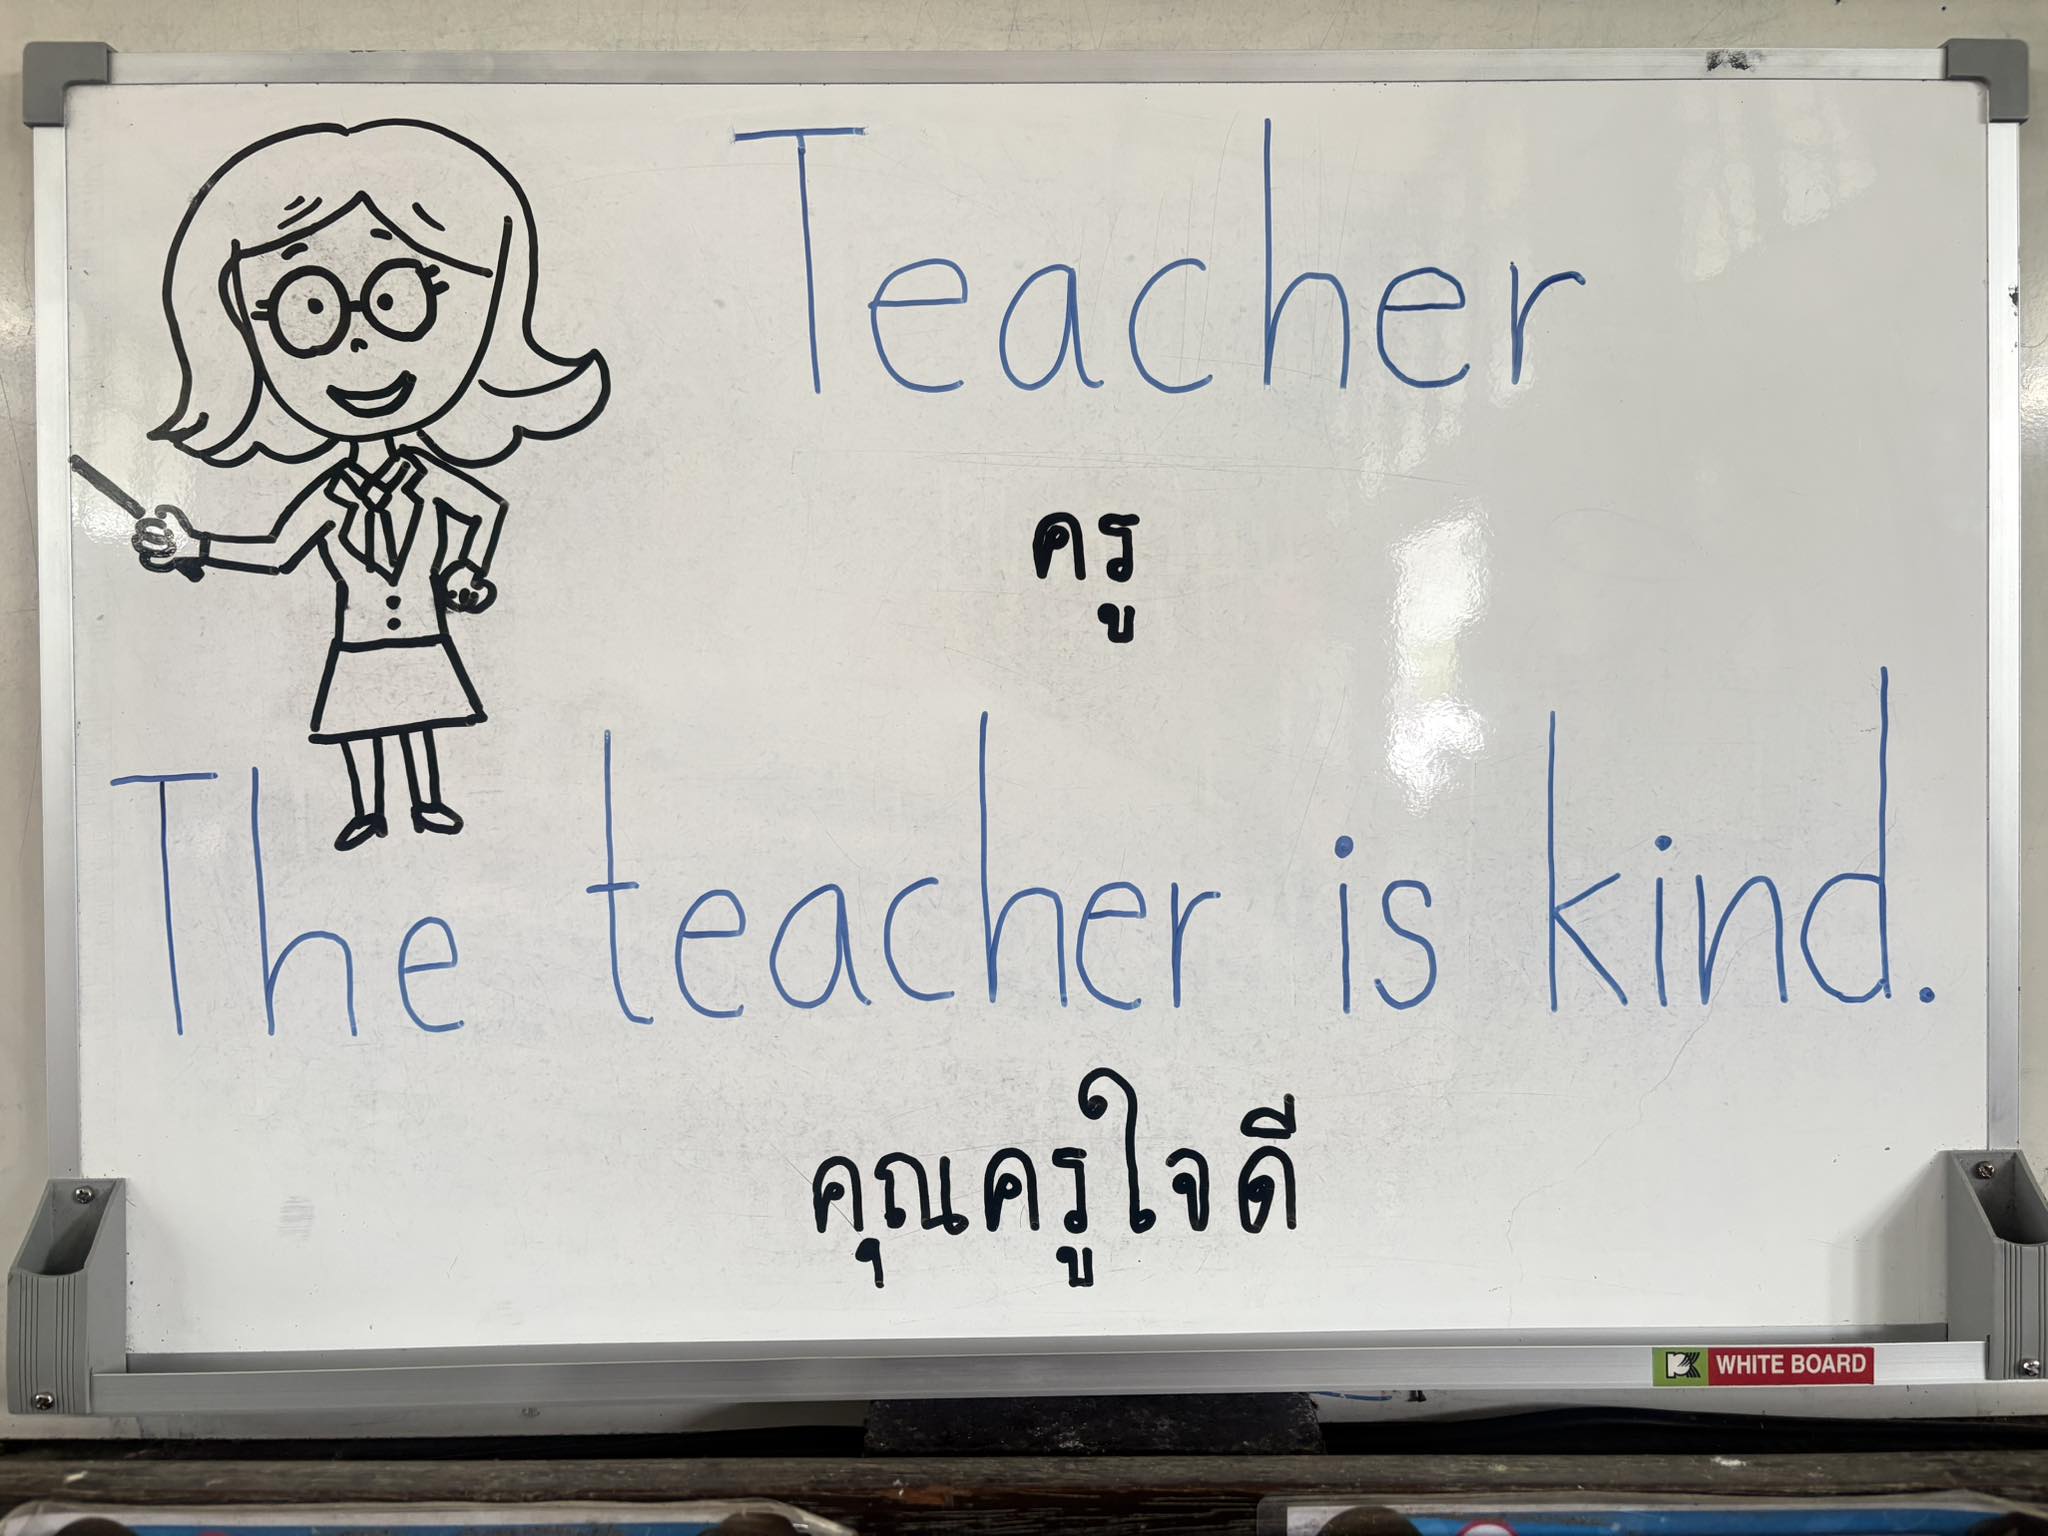 Teacher
ครู
The teacher is kind.
คุณครูใจดี
WHITE BOARD